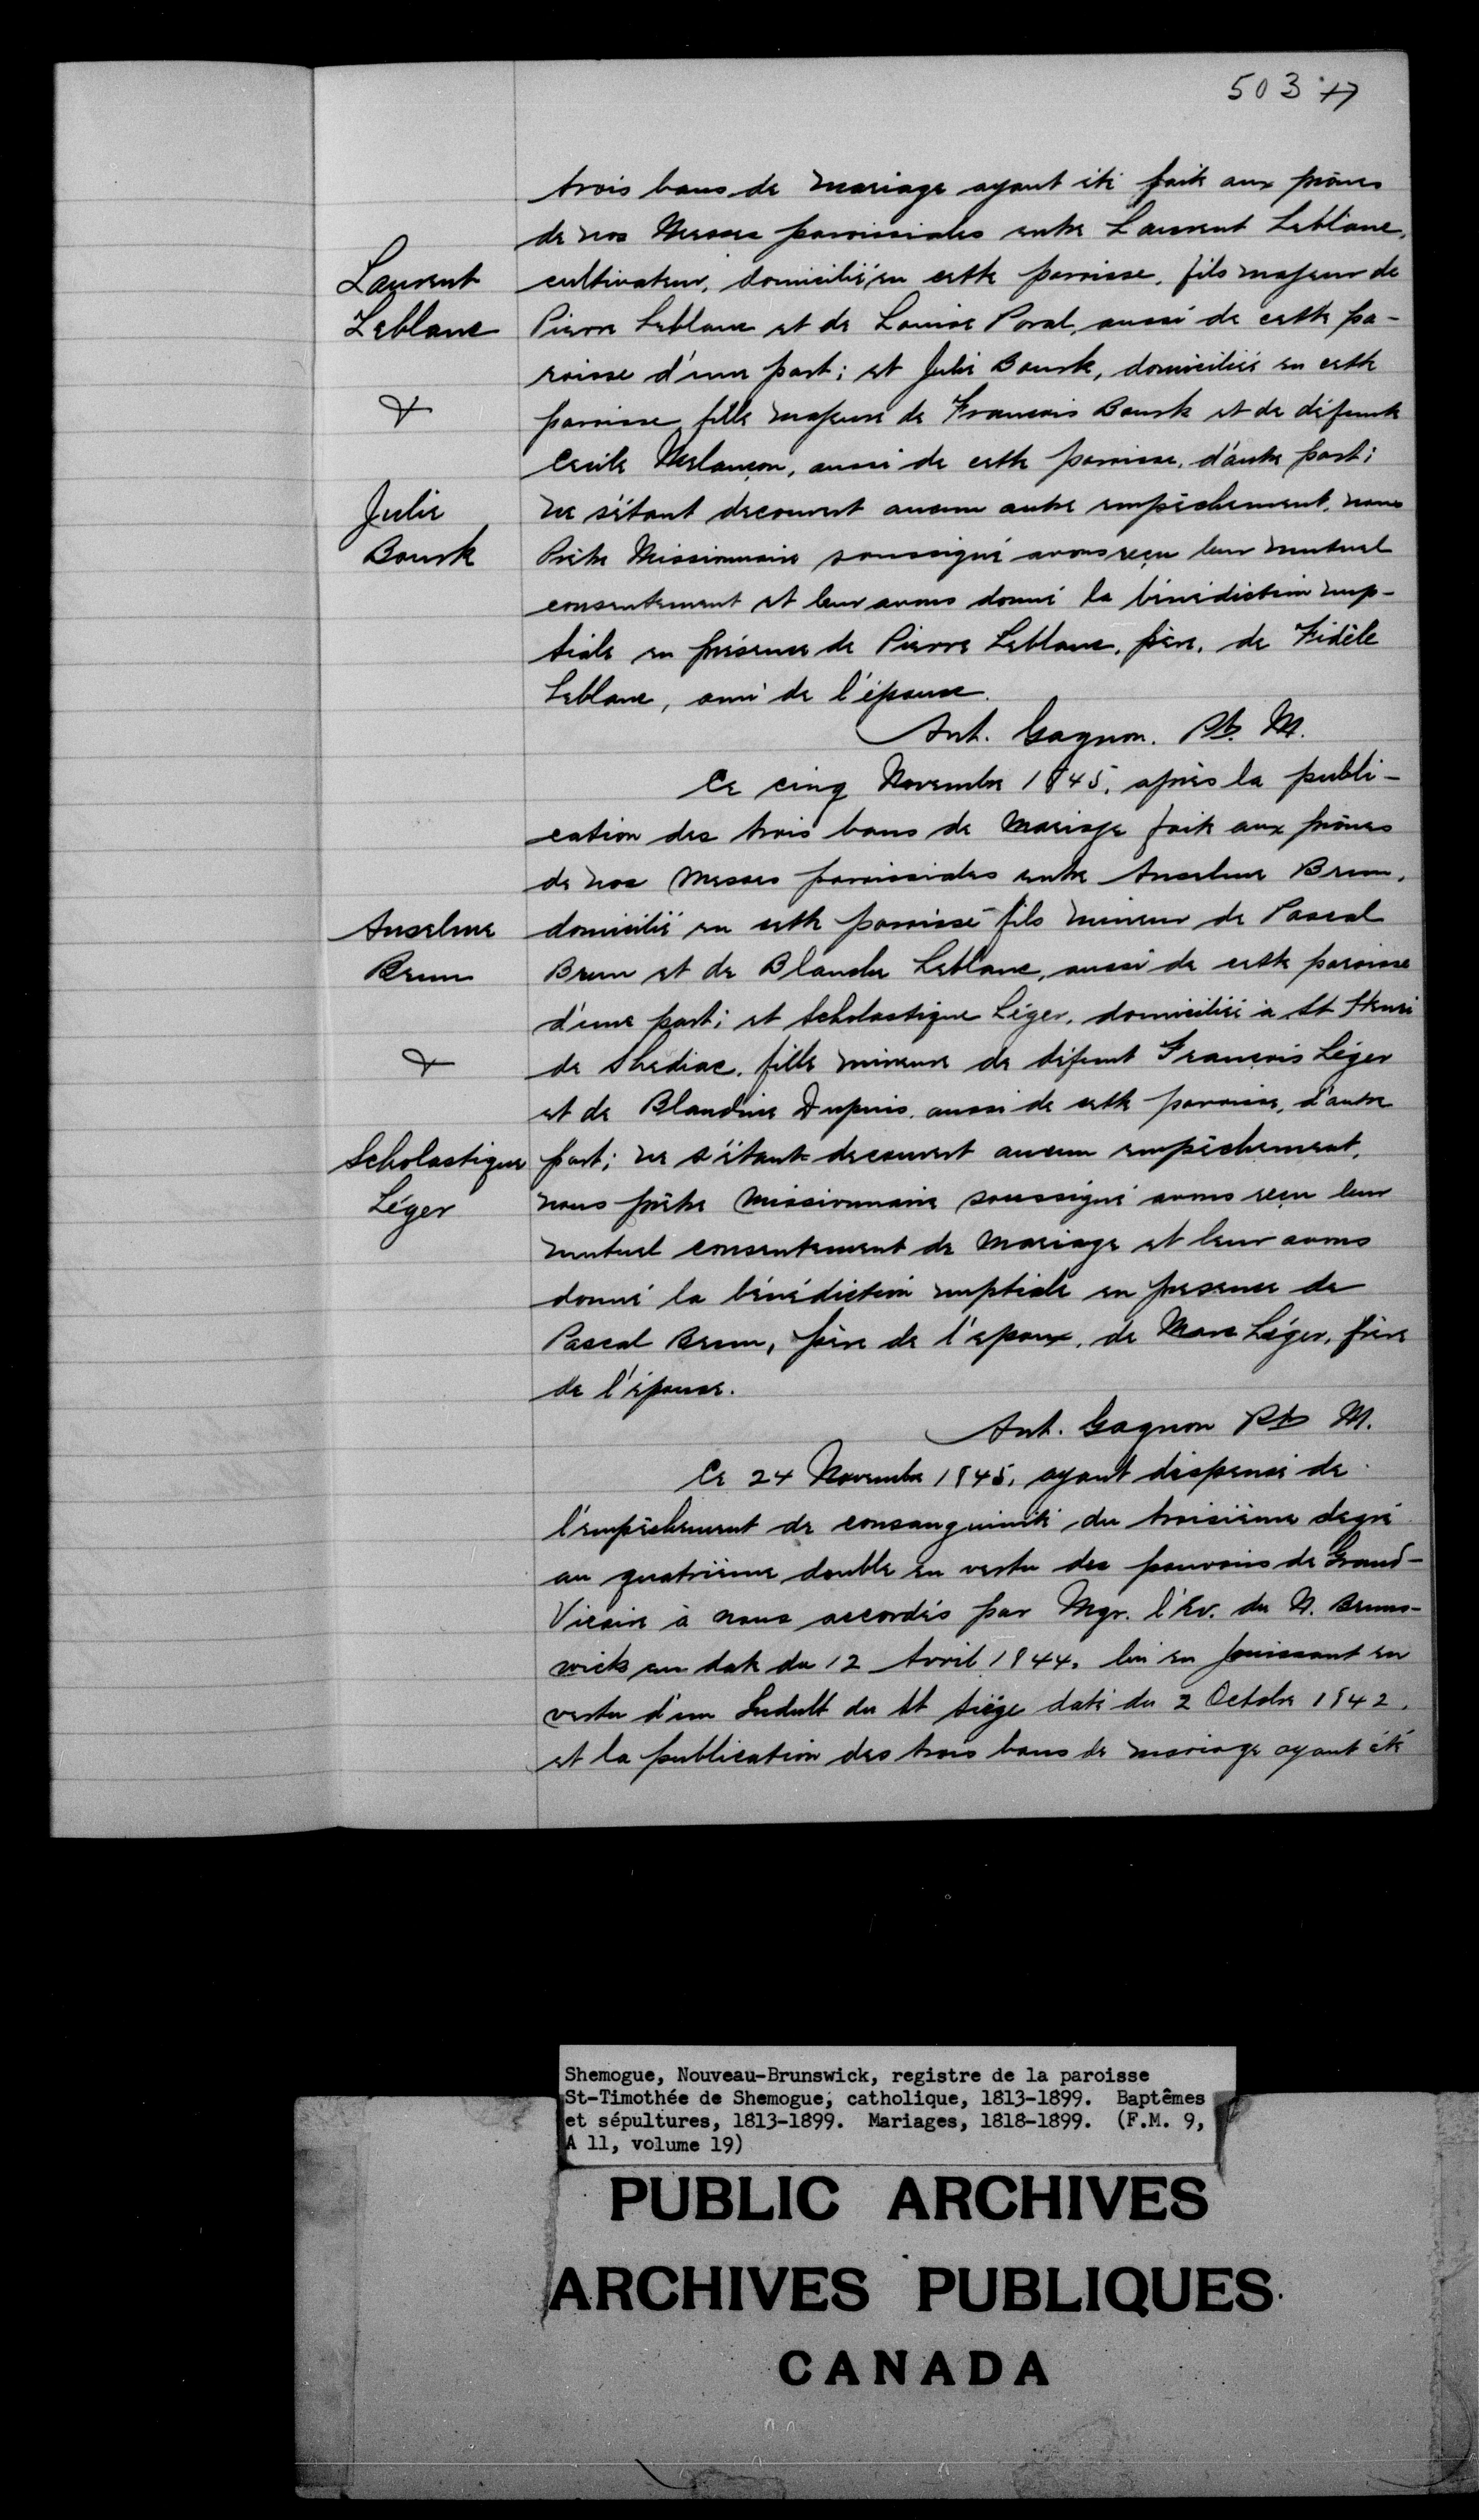 503
trois bans de mariage ayant été faite aux prônes
de nos Messes paroissiales entre Laurent Leblanc,
Laurent
Leblanc
&
Julie
Bourk
cultivateur, domicilié en cette paroisse, fils majeur de
Pierre Leblanc et de Louise Poral, aussi de cette pa-
roisse d'une part; et Julie Bourk, domiciliée en cette
paroisse fille majeure de Francois Bourk et de défunte
Cecile Melançon, aussi de cette paroisse, d'autre part;
ne s'étant decouvert aucun autre empêchement, nous
Prêtre Missionnaire soussigné avons reçu leur mutuel
consentement et leur avons donné la bénédiction nup-
tiale en présence de Pierre Leblanc, père, de Fidèle
Leblanc, ami de l'épouse.
Ant. Gagnon. Pt. M.
Ce cinq Novembre 1845, après la publi-
cation des trois bans de Mariage faite aux prônes
de nos Messes paroissiales entre Anselme Brun,
Anselme
Brun
&
Scholastique
Léger
domicilié en cette paroisse fils mineur de Pascal
Brun et de Blanche Leblanc, aussi de cette paroisse
d'une part; et Scholastique Léger, domiciliée à St Henri
de Shediac, fille mineure de défunt François Léger
et de Blandine Dupuis, aussi de cette paroisse, d'autre
part; ne s'étant decouvert aucun empêchement,
nous prêtre Missionnaire soussigné avons reçu leur
mutuel consentement de Mariage et leur avons
donné la bénédiction nuptiale en presence de
Pascal Brun, père de l'epoux, de Marc Léger, frère
de l'épouse.
Ant. Gagnon Pt M.
Ce 24 Novembre 1845, ayant dispensé de
l'empêchement de consanguinité du troisième degré
au quatrième double en vertu des pouvoirs de Grand-
Vicaire à nous accordés par Mgr. l'Ev. du N. Bruns-
wick en date du 12 Avril 1844, lui en jouissant en
vertu d'un Indult du St Siège daté du 2 Octobre 1842,
et la publication des trois bans de mariage ayant été
Shemogue, Nouveau-Brunswick, registre de la paroisse
St-Timothée de Shemogue, catholique, 1813-1899. Baptêmes
et sépultures, 1813-1899. Mariages, 1818-1899. (F.M. 9,
A 11, volume 19)
PUBLIC ARCHIVES
ARCHIVES PUBLIQUES
CANADA